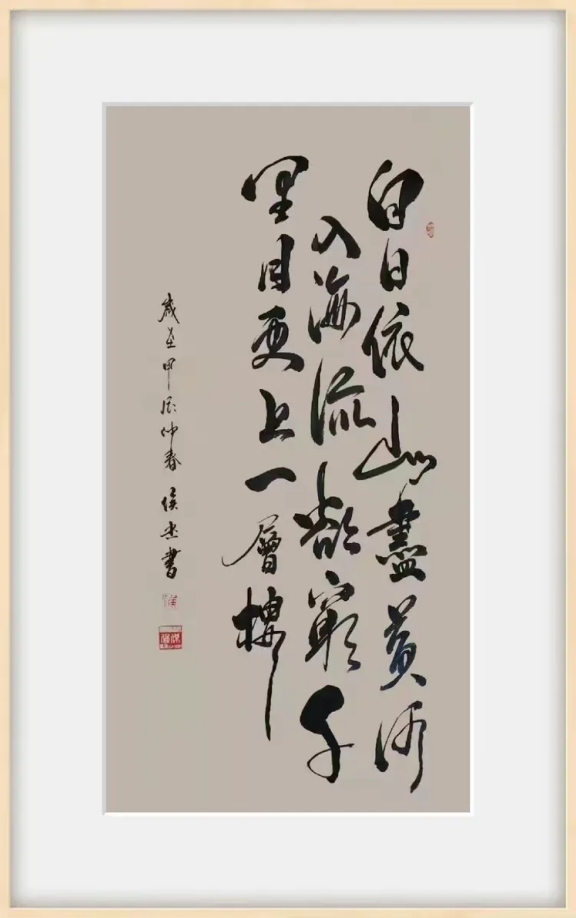 白日依山盡黃河
入海流欲窮千
里目更上一層樓
歲在甲辰仲春 侯 書